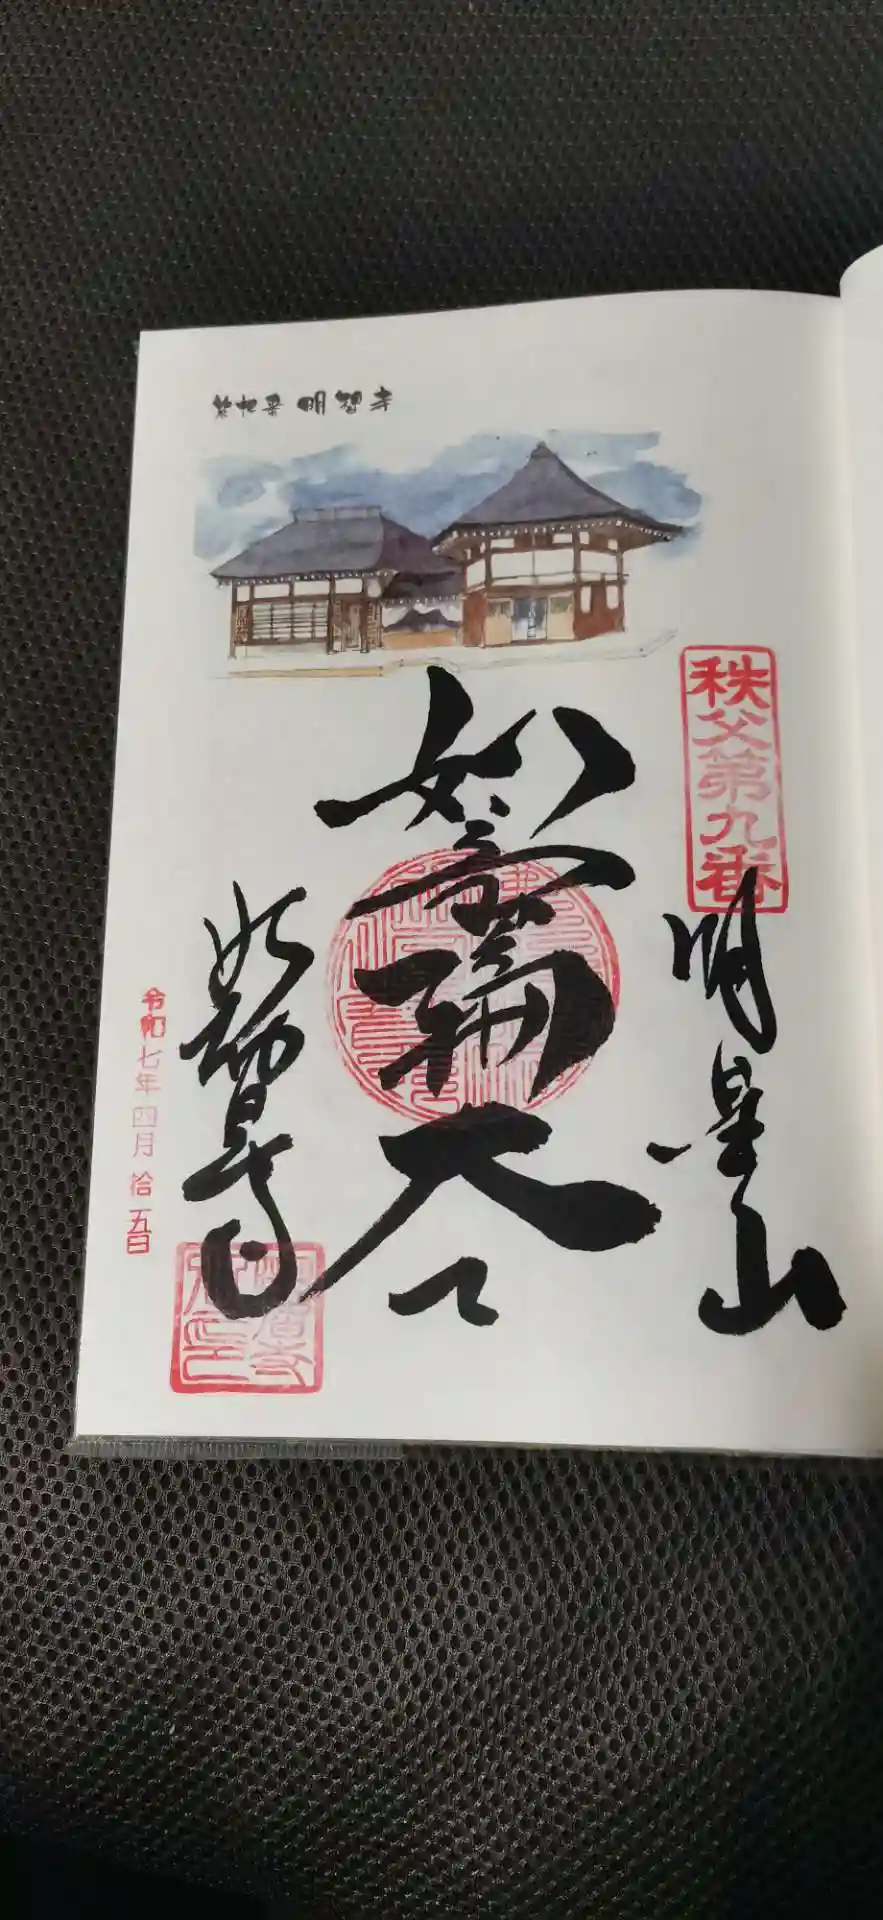 第九番 明智寺
秩父第九番
明星山
如意輪大士
明智寺
令和七年四月拾五日